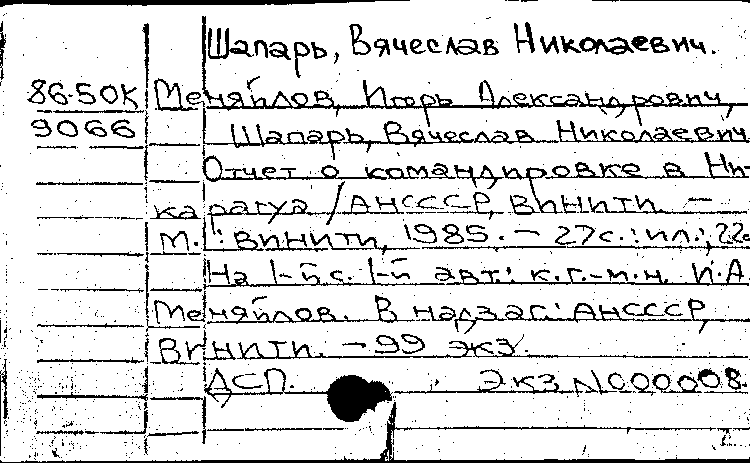 Шапарь, Вячеслав Николаевич.
86-50К Меняйлов, Игорь Александрович,
9066 Шапарь, Вячеслав Николаевич
Отчет о командировке в Ни-
карагуа / АНСССР, ВИНИТИ. —
М.: ВИНИТИ, 1985. — 27с.: ил.; 22
На 1-й с. 1-й авт.: к.г.-м.н. И.А.
Меняйлов. В надзаг.: АНСССР,
ВИНИТИ. — 99 экз.
ДСП. Экз N000008.